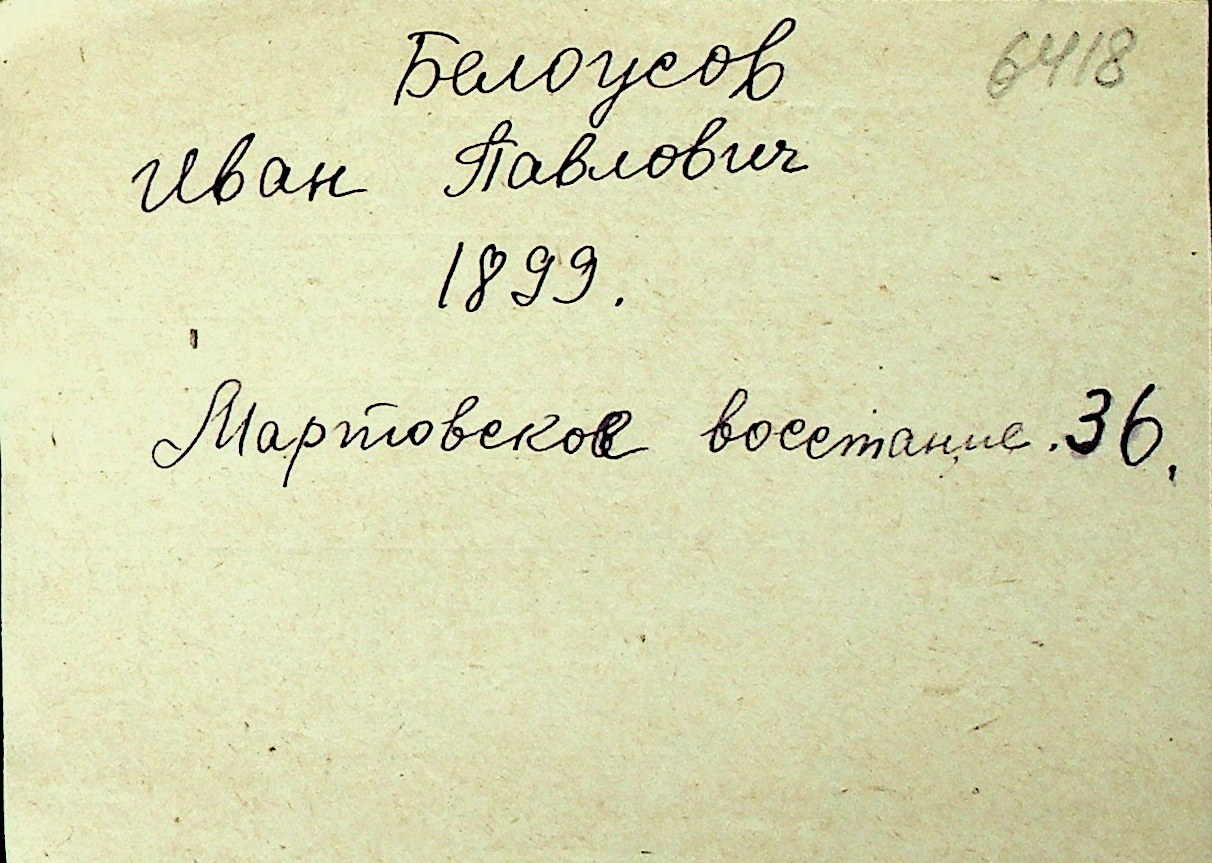 6418
Белоусов
Иван Павлович
1899.
Мартовское восстание. 36.